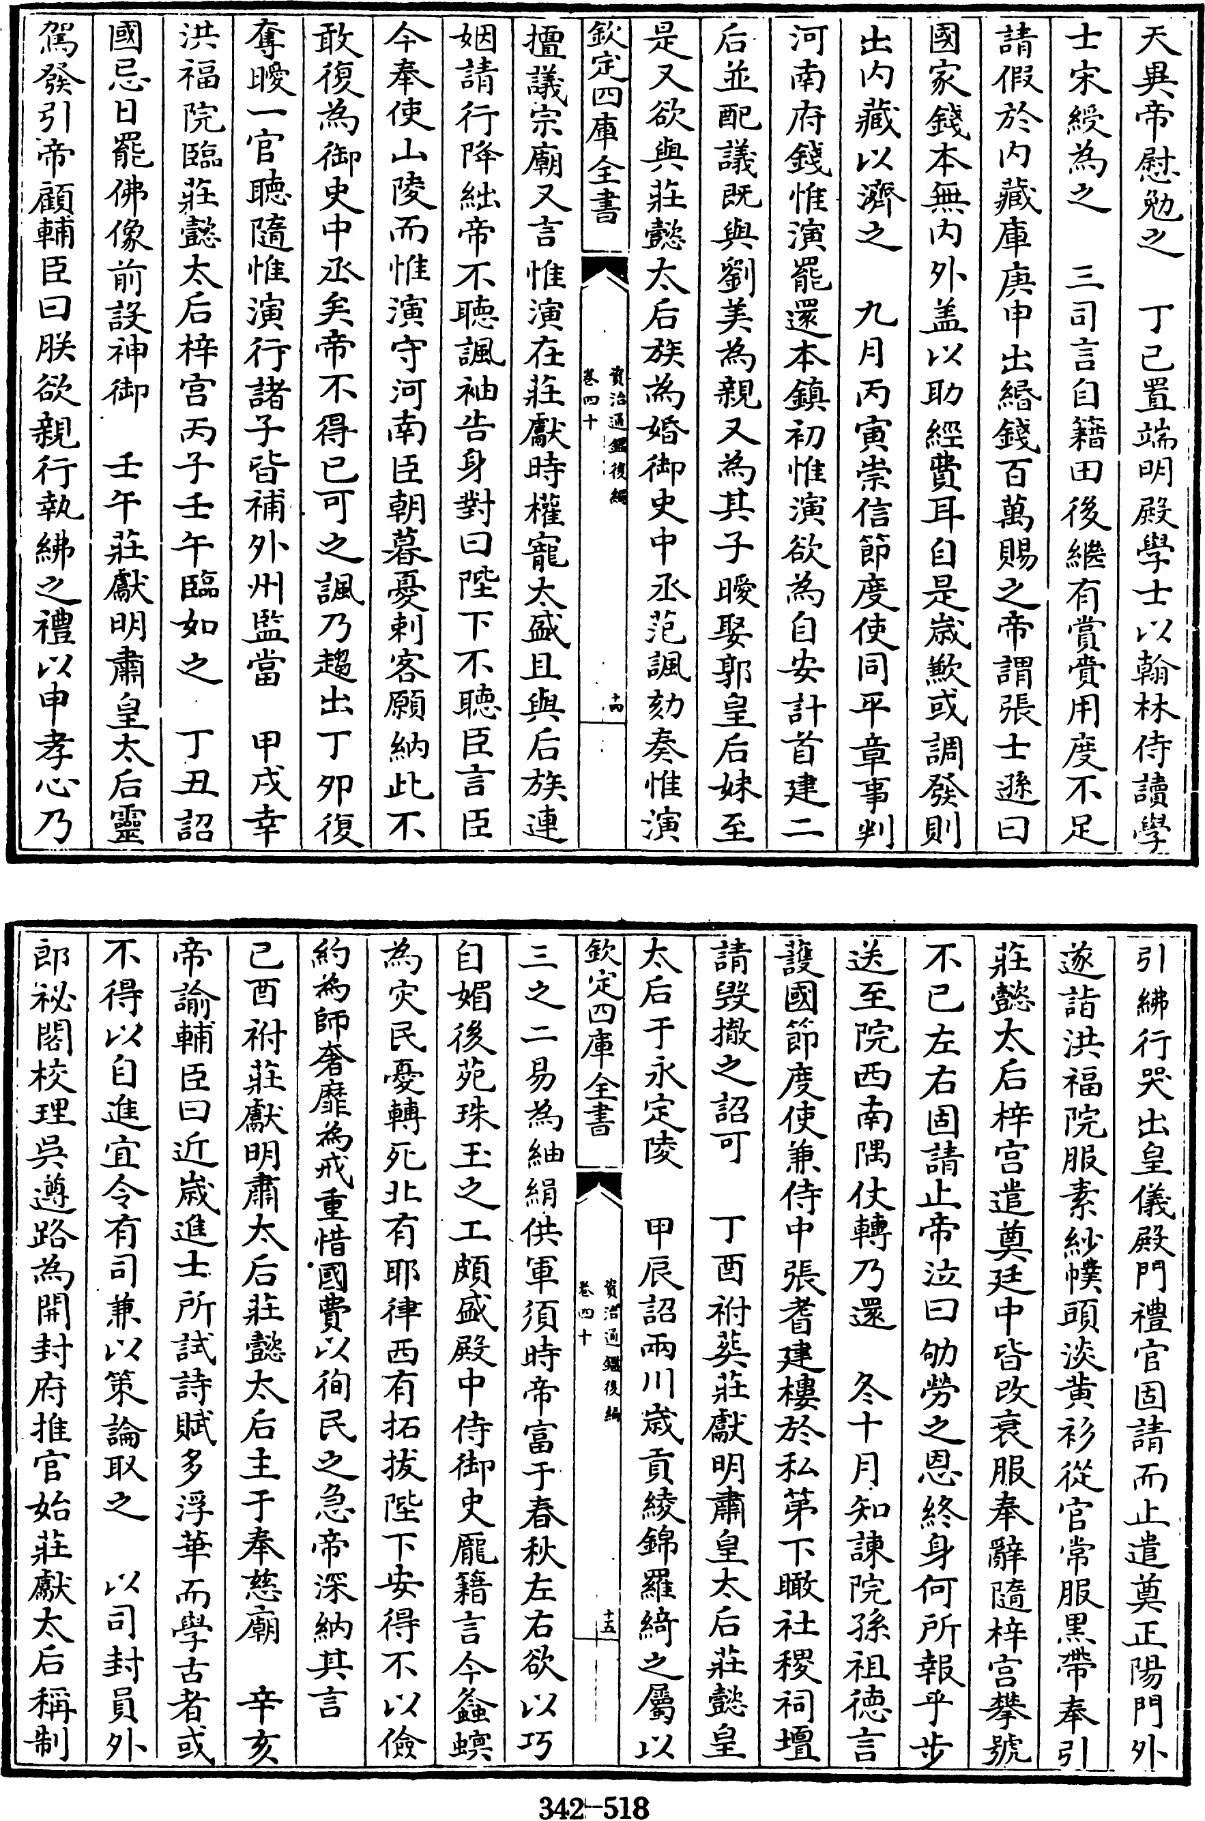 天異帝慰勉之　丁己置端明殿學士以翰林侍讀學
士宋綬為之　三司言自籍田後繼有賞賚用度不足
請假於内藏庫庚申出緡錢百萬賜之帝謂張士遜曰
國家錢本無内外盖以助經費耳自是歳歉或調發則
出内藏以濟之　九月丙寅崇信節度使同平章事判
河南府錢惟演罷還本鎮初惟演欲為自安計首建二
后並配議既與劉美為親又為其子曖娶郭皇后妹至
是又欲與莊懿太后族為婚御史中丞范諷劾奏惟演
欽定四庫全書
資治通鑑後編
卷四十
十四
擅議宗廟又言惟演在莊獻時權寵太盛且與后族連
姻請行降絀帝不聽諷袖告身對曰陛下不聽臣言臣
今奉使山陵而惟演守河南臣朝暮憂刺客願納此不
敢復為御史中丞矣帝不得已可之諷乃趨出丁夘復
奪曖一官聽隨惟演行諸子皆補外州監當　甲戌幸
洪福院臨莊懿太后梓宮丙子壬午臨如之　丁丑詔
國忌日罷佛像前設神御　壬午莊獻明肅皇太后靈
駕發引帝顧輔臣曰朕欲親行執紼之禮以申孝心乃
引紼行哭出皇儀殿門禮官固請而止遣奠正陽門外
遂詣洪福院服素紗幞頭淡黄衫從官常服黒帶奉引
莊懿太后梓宮遣奠廷中皆改衰服奉辭隨梓宮攀號
不已左右固請止帝泣曰劬勞之恩終身何所報乎步
送至院西南隅仗轉乃還　冬十月知諫院孫祖德言
護國節度使兼侍中張耆建樓於私第下瞰社稷祠壇
請毀撤之詔可　丁酉祔葬莊獻明肅皇太后莊懿皇
太后于永定陵　甲辰詔兩川歳貢綾錦羅綺之屬以
欽定四庫全書
資治通鑑後編
卷四十
十五
三之二易為紬絹供軍須時帝富于春秋左右欲以巧
自媚後苑珠玉之工頗盛殿中侍御史龎籍言今螽螟
為灾民憂轉死北有耶律西有拓拔陛下安得不以儉
約為師奢靡為戒重惜國費以徇民之急帝深納其言
己酉祔莊獻明肅太后莊懿太后主于奉慈廟　辛亥
帝諭輔臣曰近歳進士所試詩賦多浮華而學古者或
不得以自進宜令有司兼以策論取之　以司封員外
郎祕閣校理吳遵路為開封府推官始莊獻太后稱制
342-518